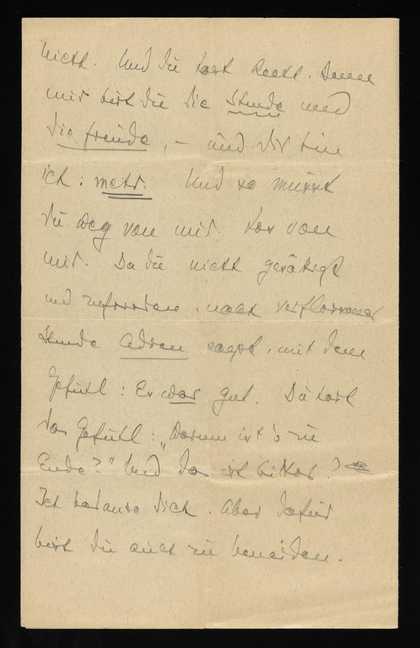 nicht. Und du hast Recht. Denn
mir bist du die Stunde und
die Freude, – und dir bin
ich: mehr. Und so musst
du weg von mir. Los von
mir. Da du nicht gesättigt
und zufrieden, nach verflossener
Stunde Adieu sagst, mit dem
Gefühl: Es war gut. Du hast
das Gefühl: „Warum ist's zu
Ende?" Und das ist bitter.
Ich bedaure dich. Aber dafür
bist du auch zu beneiden.